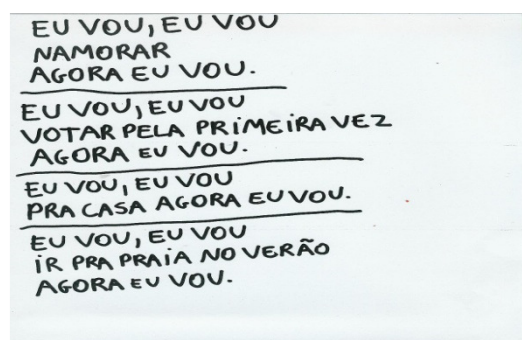 EU VOU, EU VOU
NAMORAR
AGORA EU VOU.
EU VOU, EU VOU
VOTAR PELA PRIMEIRA VEZ
AGORA EU VOU.
EU VOU, EU VOU
PRA CASA AGORA EU VOU.
EU VOU, EU VOU
IR PRA PRAIA NO VERÃO
AGORA EU VOU.